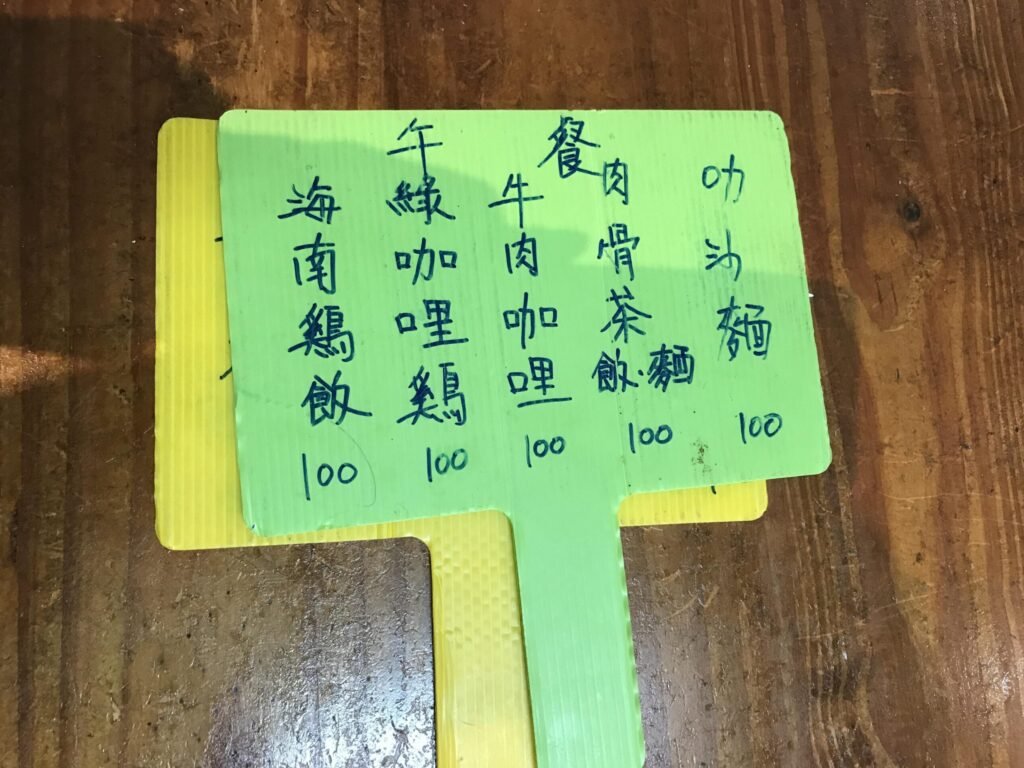 午餐
海南鷄飯 100
綠咖哩鷄 100
牛肉咖哩 100
肉骨茶飯.麵 100
叻沙麵 100